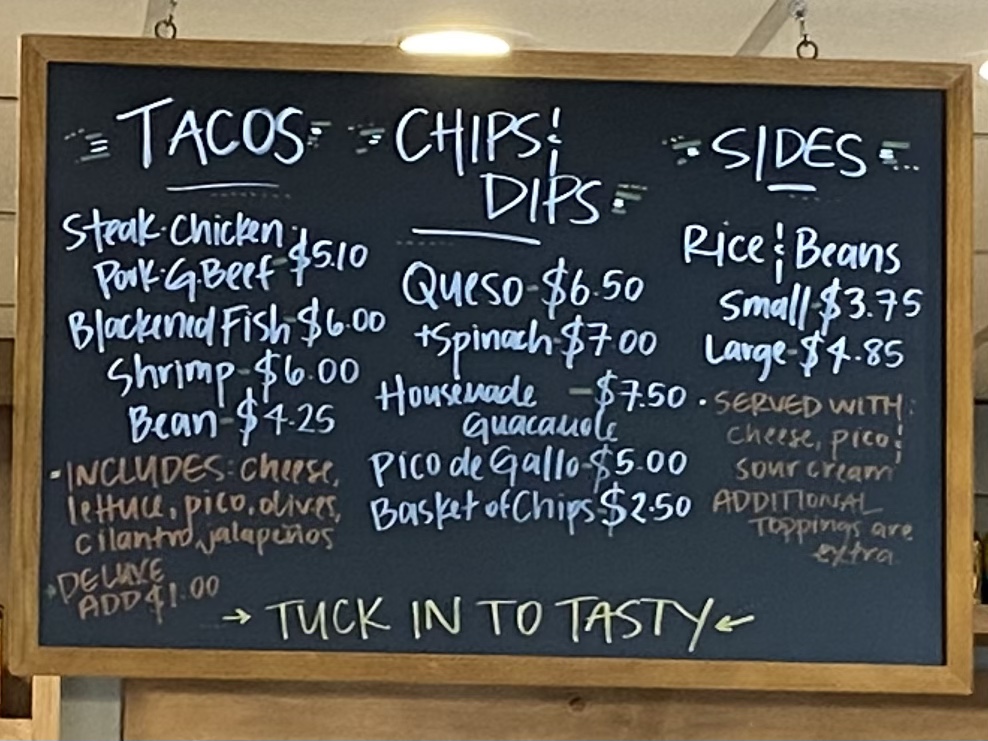 TACOS
Steak·Chicken·
Pork·G.Beef-$5.10
Blackened Fish-$6.00
Shrimp-$6.00
Bean-$4.25
·INCLUDES: cheese,
lettuce, pico, olives,
cilantro, jalapeños
·DELUXE
ADD $1.00
CHIPS &
DIPS
Queso-$6.50
+Spinach-$7.00
Housemade -$7.50
Guacamole
Pico de Gallo-$5.00
Basket of Chips-$2.50
SIDES
Rice & Beans
Small-$3.75
Large-$4.85
·SERVED WITH:
cheese, pico &
sour cream
ADDITIONAL
toppings are
extra
→ TUCK IN TO TASTY ←